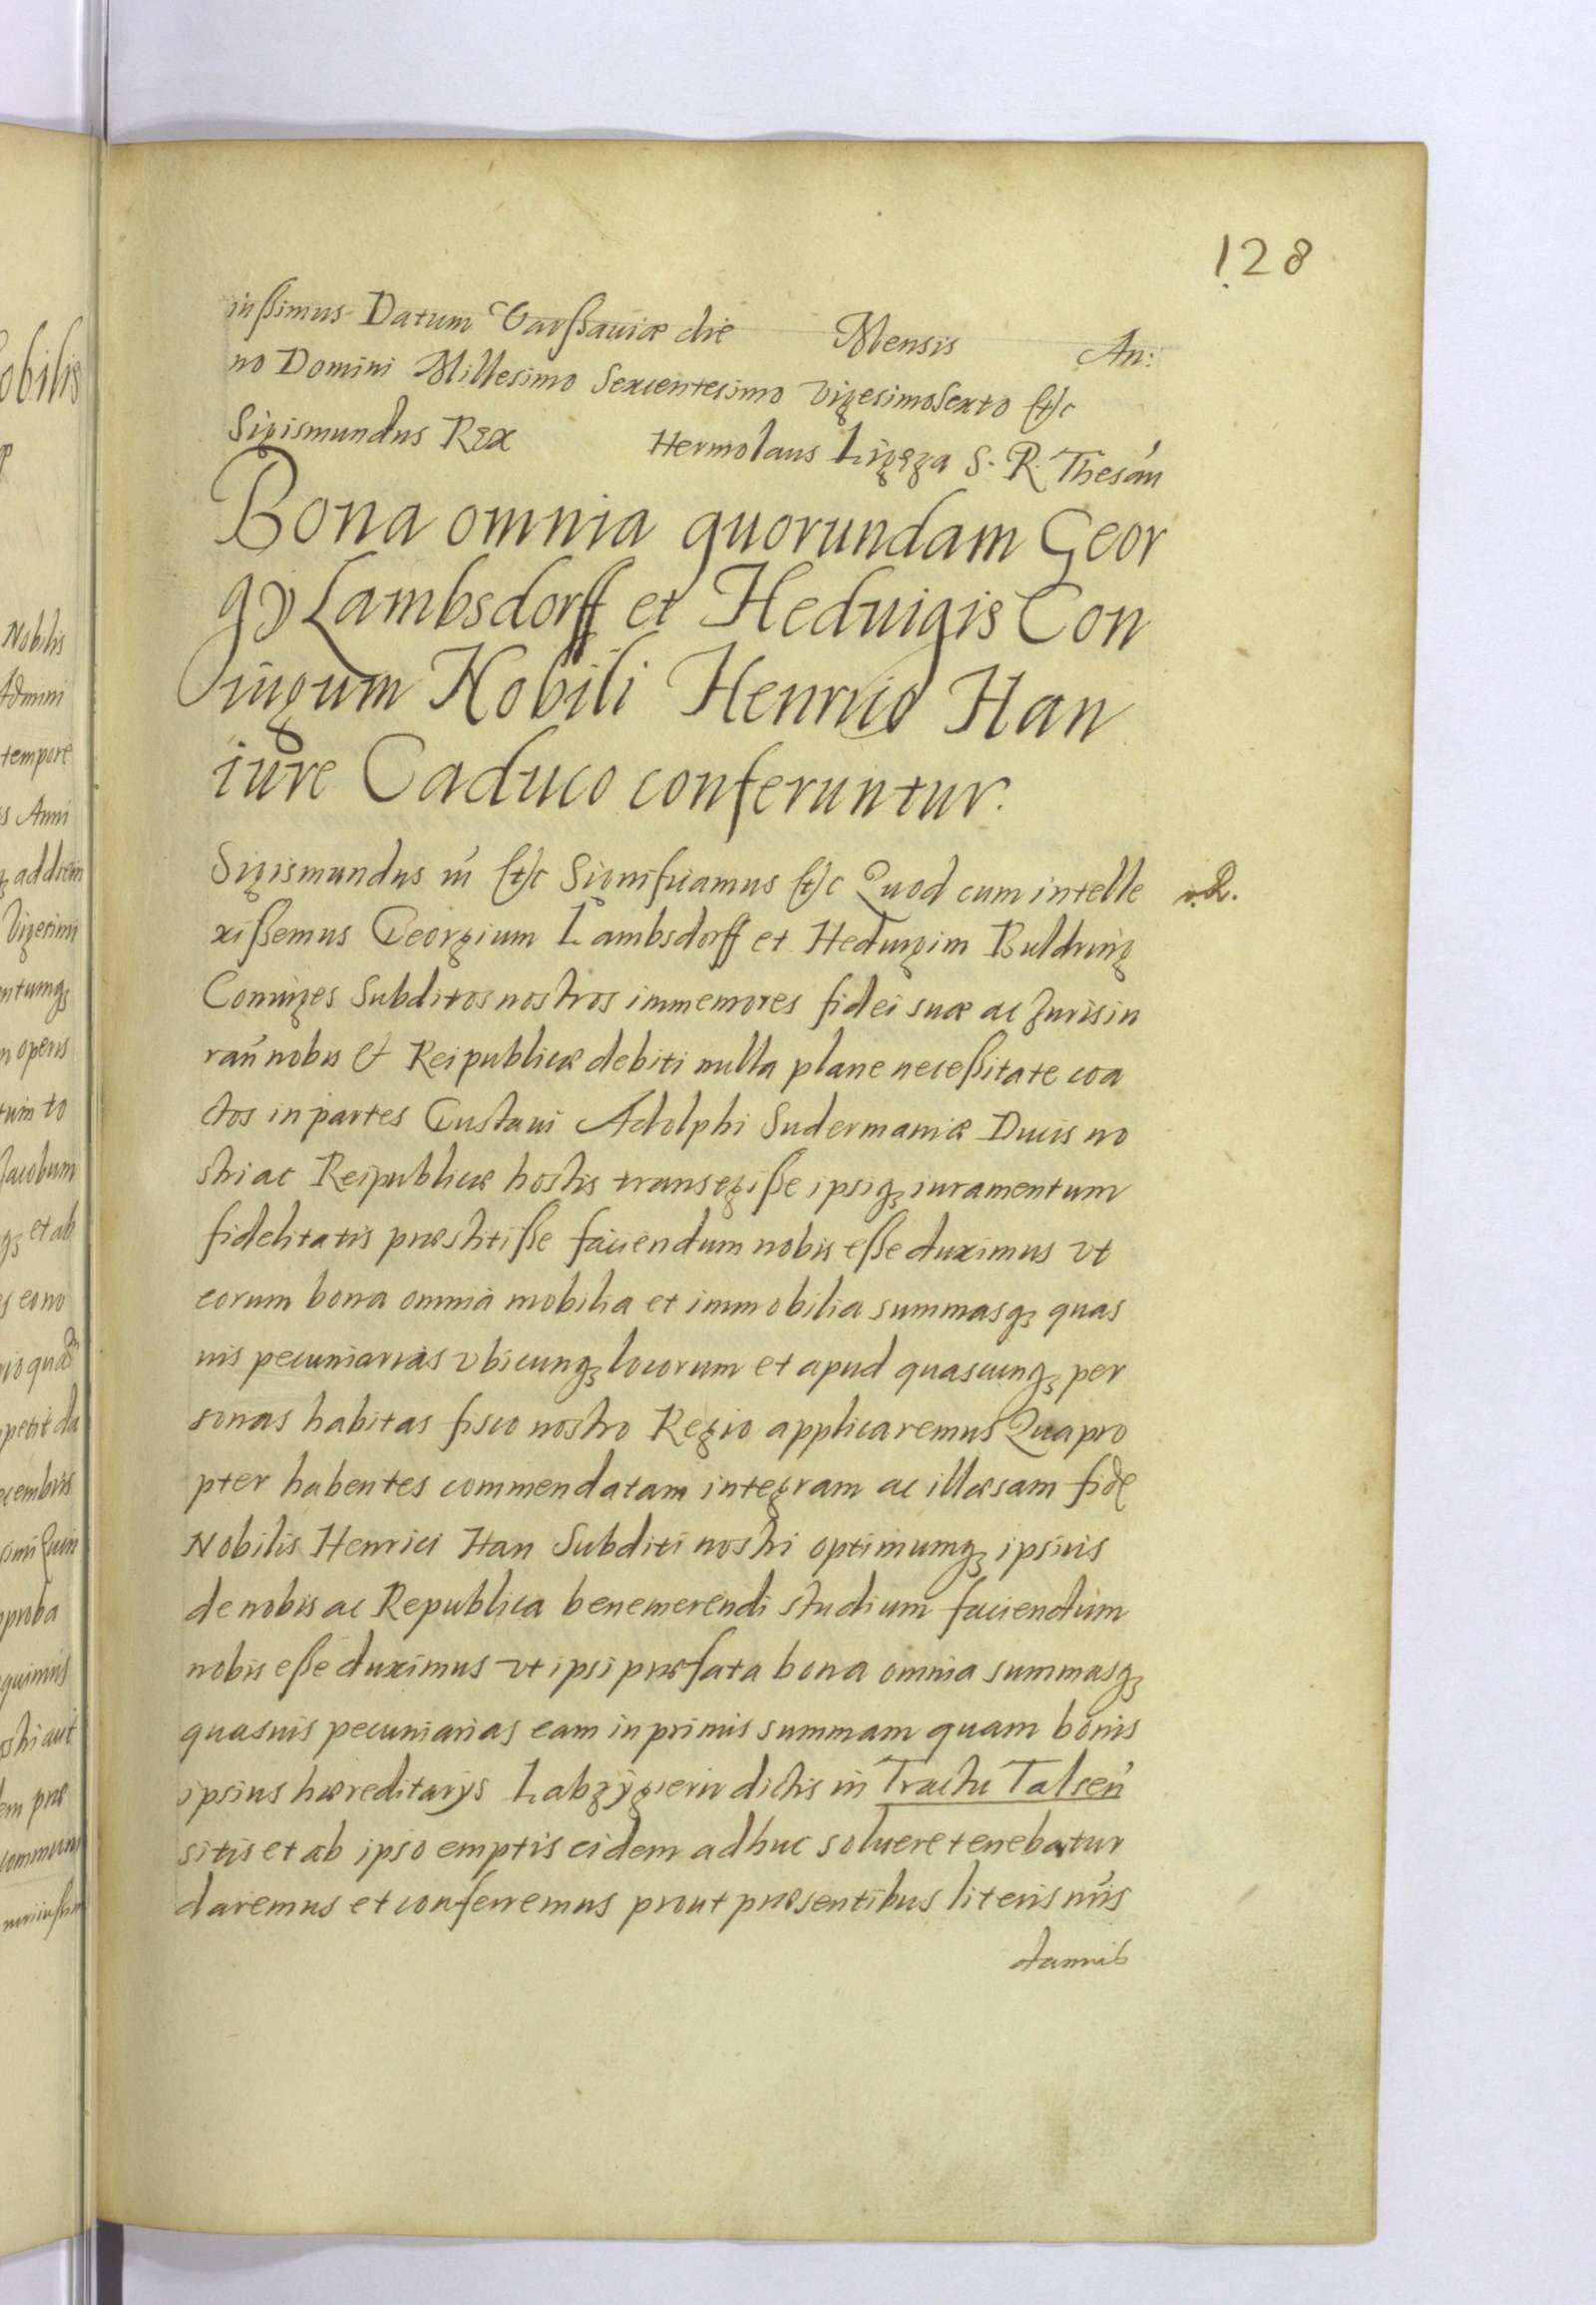 128
iussimus Datum Varssauiæ die Mensis An:
no Domini Millesimo Sexcentesimo vigesimosexto etc
Sigismundus Rex Hermolaus Ligęza S. R. Thesau
Bona omnia quorundam Geor
gy Lambsdorff et Heduigis Con
iugum Nobili Henrico Han
iure Caduco conferuntur.
Sigismundus iii etc Significamus etc Quod cum intelle
xißemus Georgium Lambsdorff et Heduigim Buldring
Coniuges Subditos nostros immemores fidei suæ ac Jurisiu
rañ nobis et Reipublicæ debiti nulla plane neceßitate coa
ctos in partes Gustaui Adolphi Sudermaniæ Ducis no
stri ac Reipublicæ hostis transegiße ipsiq; iuramentum
fidelitatis præstitiße faciendum nobis eße duximus vt
eorum bona omnia mobilia et immobilia summasq; quas
uis pecuniarias vbicunq; locorum et apud quascunq; per
sonas habitas fisco nostro Regio applicaremus Quapro
pter habentes commendatam integram ac illæsam fidę
Nobilis Henrici Han Subditi nostri optimumq; ipsius
de nobis ac Republica benemerendi studium faciendum
nobis eße duximus vt ipsi præfata bona omnia summasq;
quasuis pecuniarias eam inprimis summam quam bonis
ipsius hæreditarys Labzÿgierw dictis in Tractu Talseń
sitis et ab ipso emptis eidem adhuc soluere tenebatur
daremus et conferremus prout præsentibus literis nr̃is
damus